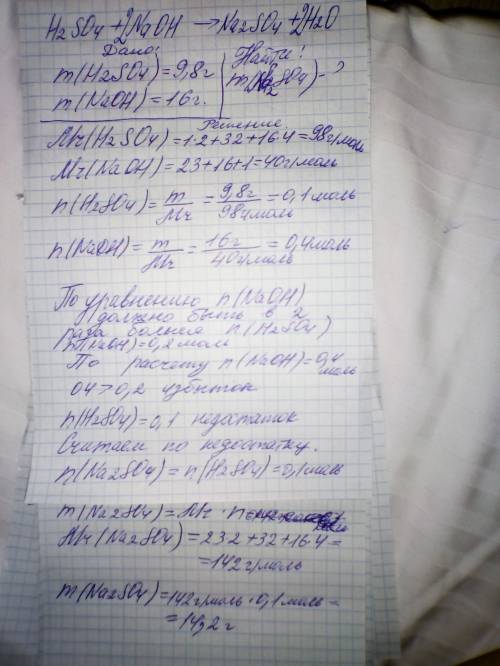 H2SO4 + 2NaOH → Na2SO4 + 2H2O
Дано:
m(H2SO4) = 9,8г
m(NaOH) = 16г.
Найти!
m(Na2SO4) - ?
Решение
Mr(H2SO4) = 1·2+32+16·4 = 98г/моль
Mr(NaOH) = 23+16+1 = 40г/моль
n(H2SO4) = m/Mr = 9,8г/98г/моль = 0,1 моль
n(NaOH) = m/Mr = 16г/40г/моль = 0,4 моль
По уравнению n(NaOH)
должно быть в 2
раза больше n(H2SO4)
n(NaOH) = 0,2 моль
По расчету n(NaOH) = 0,4
моль
04 > 0,2 избыток
n(H2SO4) = 0,1 недостаток
Считаем по недостатку.
n(Na2SO4) = n(H2SO4) = 0,1 моль
m(Na2SO4) = Mr · n
Mr(Na2SO4) = 23·2 + 32 + 16·4 =
= 142 г/моль
m(Na2SO4) = 142 г/моль · 0,1 моль =
= 14,2 г